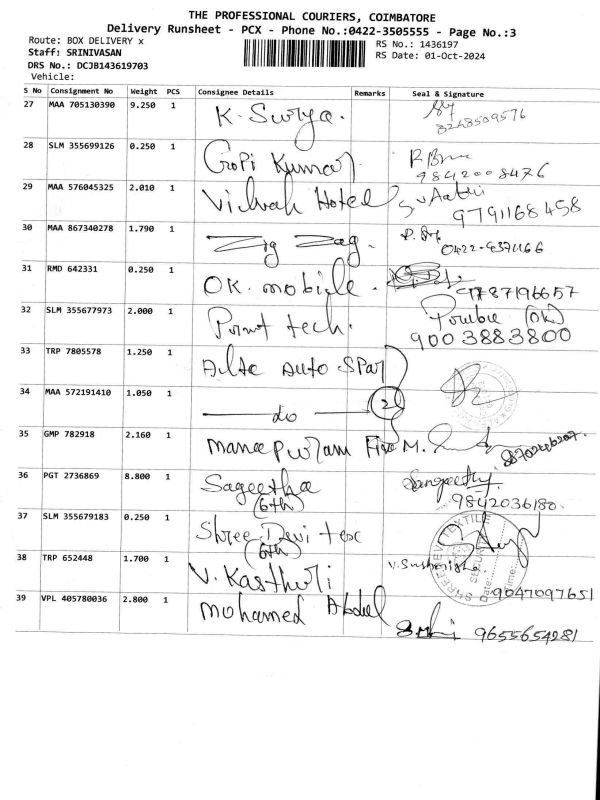 THE PROFESSIONAL COURIERS, COIMBATORE
Delivery Runsheet - PCX - Phone No.:0422-3505555 - Page No.:3
Route: BOX DELIVERY x
RS No.: 1436197
Staff: SRINIVASAN
RS Date: 01-Oct-2024
DRS No.: DCJB143619703
Vehicle:
S No Consignment No Weight PCS Consignee Details Remarks Seal & Signature
27 MAA 705130390 9.250 1 K. Surya.
8248509576
28 SLM 355699126 0.250 1 Gopi Kumar
9842008476
29 MAA 576045325 2.010 1 Hotel
9791168458
30 MAA 867340278 1.790 1 Zig Zag.
0422-4371166
31 RMD 642331 0.250 1 OK. mobile.
9787196657
32 SLM 355677973 2.000 1 Print tech.
9003883800
33 TRP 7805578 1.250 1 Auto Spar
34 MAA 572191410 1.050 1 do 2
35 GMP 782918 2.160 1 Manappuram Fin M.
36 PGT 2736869 8.800 1 Sageetha
(6th)
Sangeetha
9842036180.
37 SLM 355679183 0.250 1 Shree Devi tex
(6th)
38 TRP 652448 1.700 1 V. Kasthuri
9047097651
39 VPL 405780036 2.800 1 Mohamed Abdul
9655654281